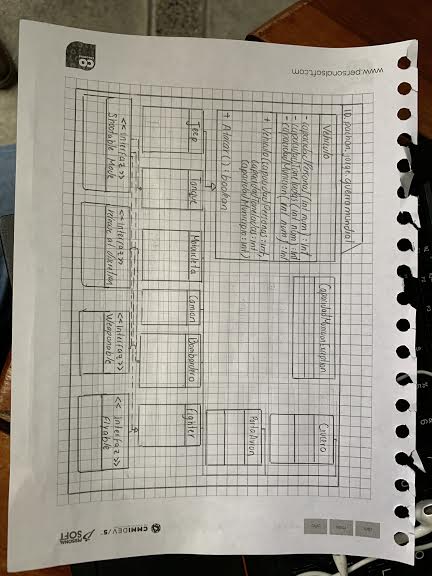 10. pachon. jorge. guerramundial
Vehiculo
- capacidadPersonal (int num) : int
- capacidadToneladas (int num) : int
- capacidadMunicion (int num) : int
+ Vehiculo (capacidadPersonas : int,
capacidadToneladas : int
capacidadMunicipio : int)
+ Atacar () : boolean
CapacidadMunicionException
Crucero
PortaAvion
Jeep
Tanque
Motocicleta
Camion
Bombardero
Fighter
<< interfaz >>
Shootable Mode
<< interfaz >>
release at discretion
<< Interfaz >>
Weaponable
<< Interfaz >>
Flyable
www.personalsoft.com
CMMIDEV/5
PERSONAL
SOFT